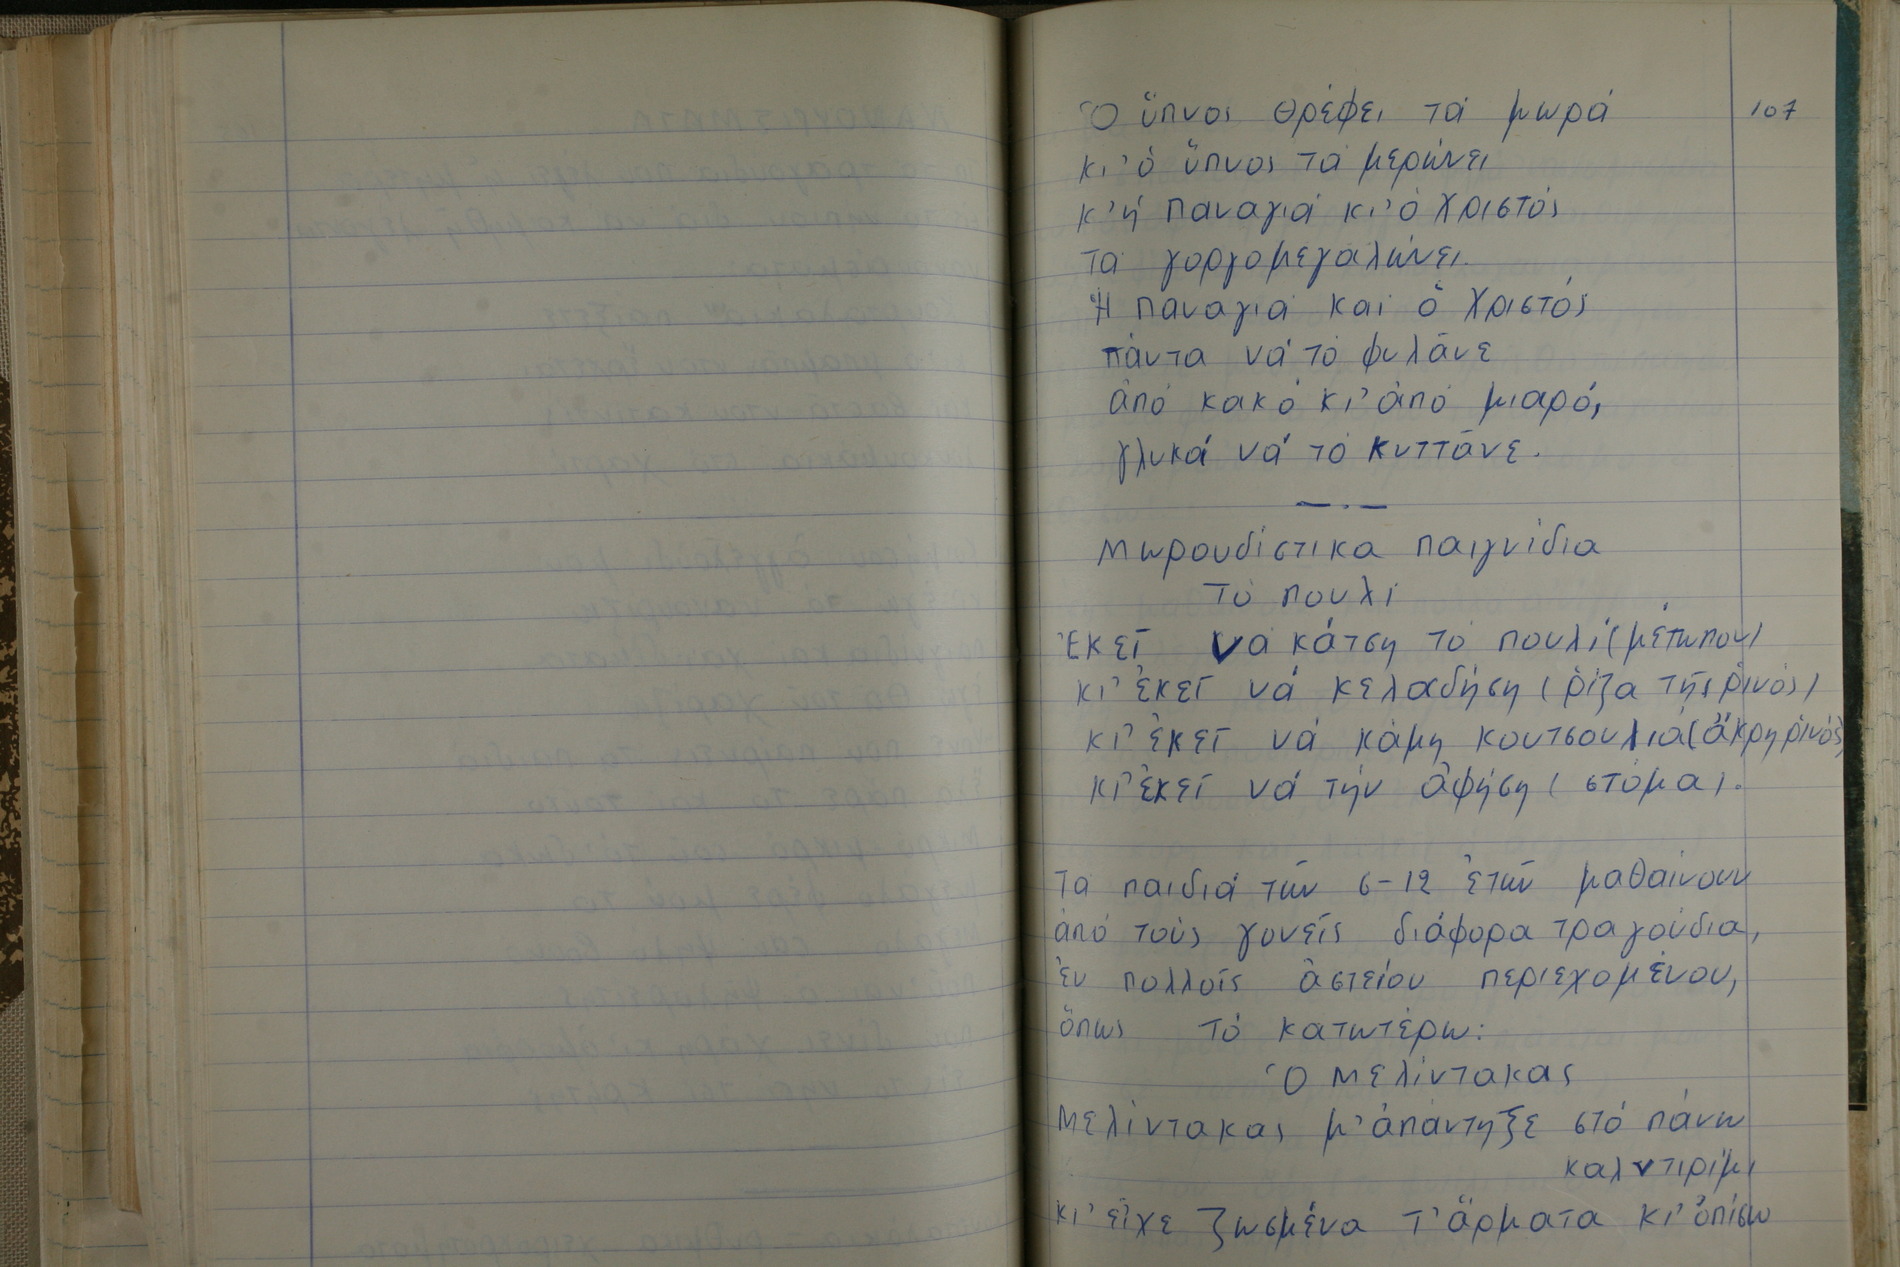 107
Ὁ ὕπνος θρέφει τά μωρά
κι' ὁ ὕπνος τά μερώνει
κ' ἡ Παναγιά κι' ὁ Χριστός
τά γοργομεγαλώνει.
Ἡ Παναγιά καί ὁ Χριστός
πάντα νά τό φυλᾶνε
ἀπό κακό κι' ἀπό μιαρό,
γλυκά νά τό κυττᾶνε.
Μωρουδίστικα παιγνίδια
Τό πουλί
Ἐκεῖ νά κάτση τό πουλί (μέτωπον)
κι' ἐκεῖ νά κελαδήση (ρίζα τῆς ρινός)
κι' ἐκεῖ νά κάμη κουτσουλιά (ἄκρη ρινός)
κι' ἐκεῖ νά τήν ἀφήση (στόμα).
Τά παιδιά τῶν 6-12 ἐτῶν μαθαίνουν
ἀπό τούς γονεῖς διάφορα τραγούδια,
ἐν πολλοῖς ἀστείου περιεχομένου,
ὅπως τό κατωτέρω:
Ὁ Μελίντακας
Μελίντακας μ' ἀπάντηξε στό πάνω
καλντιρίμι
κι' εἶχε ζωσμένα τ' ἄρματα κι' ὀπίσω